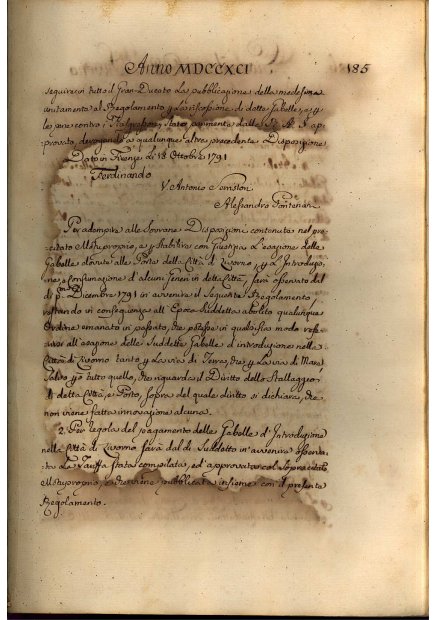 Anno MDCCXCI 185
seguire in tutto il Gran-Ducato la pubblicazione della medesima
unitamente al Regolamento p la riscossione di dette Gabelle, e p
le pene contro i Trasgressori, stato parimente dalla R. A. S. ap-
provato, derogando a qualunque altra precedente Disposizione.
Dato in Firenze li 18 Ottobre 1791
Ferdinando
V. Antonio Serristori
Alessandro Pontenani
Per adempire alle Sovrane Disposizioni contenute nel pre-
citato Motuproprio, e p stabilire con giustizia l'esazione delle
Gabelle dovute alle Porte della Città di Livorno, p l'Introduzio-
ne, e consumazione d'alcuni generi in detta Città, sarà osservato dal
dì p.mo Dicembre 1791 in avvenire il seguente Regolamento,
restando in conseguenza all'Epoca suddetta abolito qualunque
Ordine emanato in passato, che potesse in qualsisia modo refe-
rire all'esazione delle suddette Gabelle d'introduzione nella
Città di Livorno tanto p la via di Terra, che p la via di Mare,
salvo p tutto quello, che riguarda il Diritto dello Stallaggio
di detta Città, e Porto, sopra del quale diritto si dichiara, che
non viene fatta innovazione alcuna.
2. Per regola del pagamento delle Gabelle d'Introduzione
nella Città di Livorno sarà dal dì suddetto in avvenire osserva-
ta la Tariffa stata compilata, ed approvata col sopracitato
Motuproprio, e che viene pubblicata insieme con il presente
Regolamento.